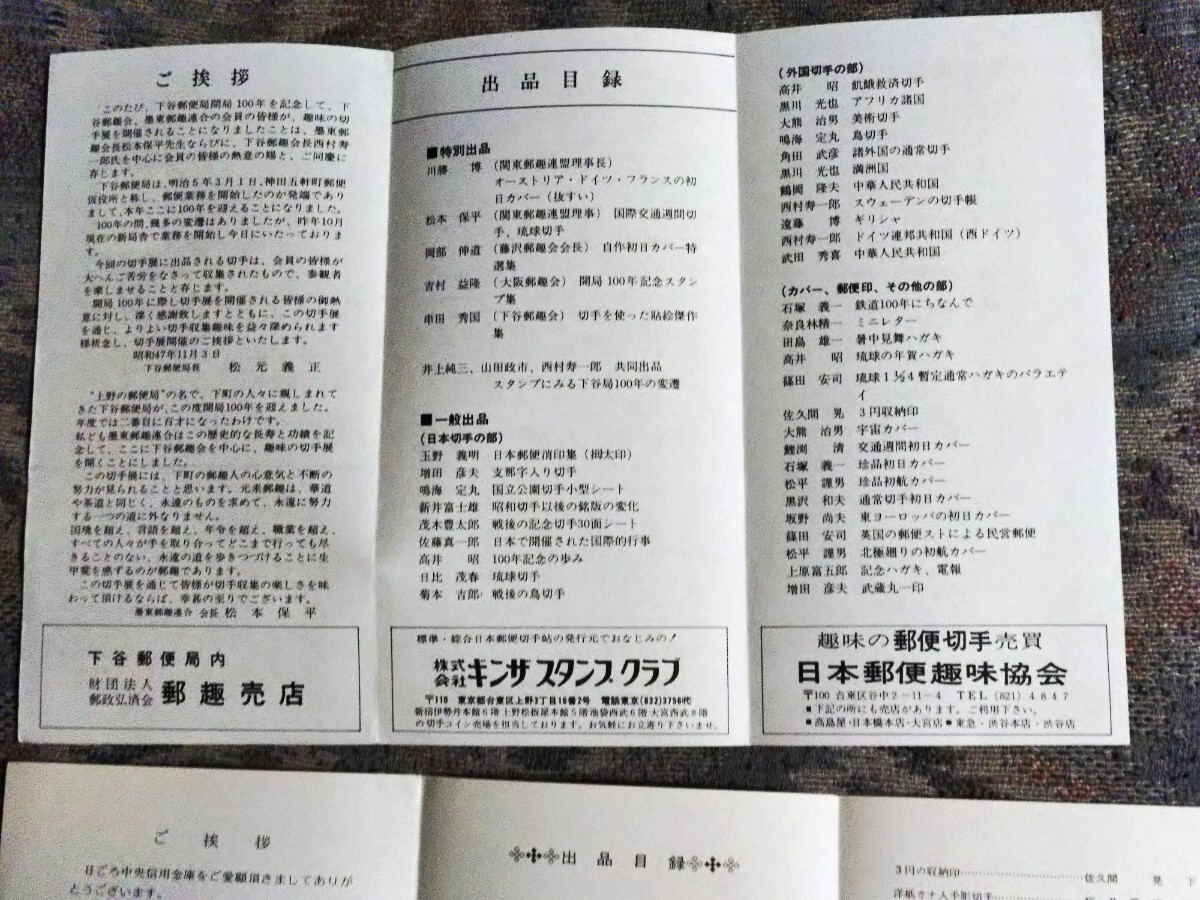 ご挨拶
このたび、下谷郵便局開局100年を記念して、下
谷郵趣会、墨東郵趣連合の会員の皆様が、趣味の切
手展を開催されることになりましたことは、墨東郵
趣会長松本保平先生ならびに、下谷郵趣会長西村寿
一郎氏を中心に会員の皆様の熱意の賜と、ご同慶に
存じます。
下谷郵便局は、明治5年3月1日、神田五軒町郵便
仮役所と称し、郵便業務を開始したのが発端であり
まして、本年ここに100年を迎えることになりました。
100年の間、幾多の変遷はありましたが、昨年10月
現在の新局舎で業務を開始し今日にいたっておりま
す。
今回の切手展に出品される切手は、会員の皆様が
大へんご苦労をなさって収集されたもので、参観者
を楽しませることと存じます。
開局100年に際し切手展を開催される皆様の御熱
意に対し、深く感謝致しますとともに、この切手展
を通じ、よりよい切手収集趣味を益々深められます
様祈念し、切手展開催のご挨拶といたします。
昭和47年11月3日
下谷郵便局長 松元義正
“上野の郵便局”の名で、下町の人々に親しまれて
きた下谷郵便局が、この度開局100年を迎えました。
年度では二番目に百才になったわけです。
私ども墨東郵趣連合はこの歴史的な長寿と功績を記
念して、ここに下谷郵趣会を中心に、趣味の切手展
を開くことにしました。
この切手展には、下町の郵趣人の心意気と不断の
努力が見られることと思います。元来郵趣は、華道
や茶道と同じく、永遠のものを求めて、永遠に努力
する一つの道に外なりません。
国境を超え、言語を超え、年令を超え、職業を超え、
すべての人々が手を取り合ってどこまで行っても尽
きることのない、永遠の道を歩きつづけることに生
甲斐を感ずるのが郵趣であります。
この切手展を通じて皆様が切手収集の楽しさを味
わって頂けるならば、幸甚の至りでございます。
墨東郵趣連合 会長 松本保平
下谷郵便局内
財団法人
郵政弘済会 郵趣売店
出品目録
■特別出品
川勝 博 (関東郵趣連盟理事長)
オーストリア・ドイツ・フランスの初
日カバー(抜すい)
松本 保平 (関東郵趣連盟理事) 国際交通週間切
手、琉球切手
岡部 伸道 (藤沢郵趣会会長) 自作初日カバー特
選集
吉村 益隆 (大阪郵趣会) 開局100年記念スタン
プ集
串田 秀国 (下谷郵趣会) 切手を使った貼絵傑作
集
井上純三、山田政市、西村寿一郎 共同出品
スタンプにみる下谷局100年の変遷
■一般出品
(日本切手の部)
玉野 義明 日本郵便消印集(拇太印)
増田 彦夫 支那字入り切手
鳴海 定丸 国立公園切手小型シート
新井富士雄 昭和切手以後の銘版の変化
茂木豊太郎 戦後の記念切手30面シート
佐藤真一郎 日本で開催された国際的行事
高井 昭 100年記念の歩み
日比 茂春 琉球切手
菊本 吉郎 戦後の鳥切手
標準・綜合日本郵便切手帖の発行元でおなじみの!
株式
会社 ギンザスタンプクラブ
〒110 東京都台東区上野3丁目16番2号 電話東京(832)3756代
新宿伊勢丹本館6階 上野松坂屋本館5階池袋西武6階 大宮西武8階
の切手コイン売場を担当しております。お気軽にお立寄り下さいませ。
(外国切手の部)
高井 昭 飢餓救済切手
黒川 光也 アフリカ諸国
大熊 治男 美術切手
鳴海 定丸 鳥切手
角田 武彦 諸外国の通常切手
黒川 光也 満洲国
鶴岡 隆夫 中華人民共和国
西村寿一郎 スウェーデンの切手帳
遠藤 博 ギリシャ
西村寿一郎 ドイツ連邦共和国(西ドイツ)
武田 秀喜 中華人民共和国
(カバー、郵便印、その他の部)
石塚 義一 鉄道100年にちなんで
奈良林精一 ミニレター
田島 雄一 暑中見舞ハガキ
高井 昭 琉球の年賀ハガキ
篠田 安司 琉球1 3/2 4 暫定通常ハガキのバラエテ
ィ
佐久間 晃 3円収納印
大熊 治男 宇宙カバー
鯉渕 清 交通週間初日カバー
石塚 義一 珍品初日カバー
松平 謹男 珍品初航カバー
黒沢 和夫 通常切手初日カバー
坂野 尚夫 東ヨーロッパの初日カバー
篠田 安司 英国の郵便ストによる民営郵便
松平 謹男 北極廻りの初航カバー
上原富五郎 記念ハガキ、電報
増田 彦夫 武蔵丸一印
趣味の郵便切手売買
日本郵便趣味協会
〒100 台東区谷中2-11-4 TEL(821)4847
■下記の所にも売店があります。ご利用下さい。
■高島屋・日本橋本店・大宮店 ■東急・渋谷本店・渋谷店
ご挨拶
日ごろ中央信用金庫をご愛顧頂きましてありが
とうございます。
出品目録
3円の収納印 佐久間 晃 下
洋紙カナ入手彫切手